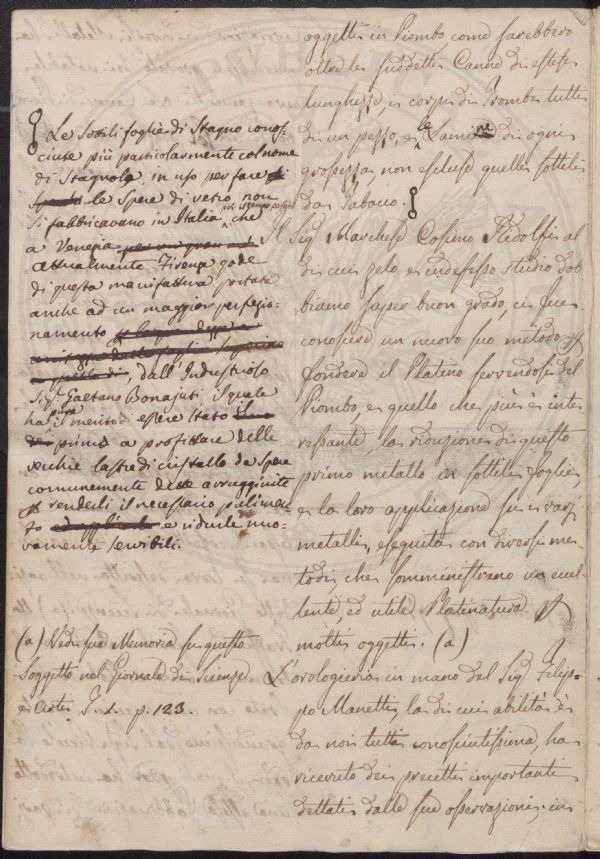 oggetti in Piombo come sarebbero
oltre le suddette Canne di estese
lunghezze, i corpi di Trombe tutte
di un pezzo, e le Lamine di ogni
grossezza non escluse quelle sottili
da Tabacco.
Il Sig. Marchese Cosimo Ridolfi al
di cui zelo e indefesso studio dob
biamo saper buon grado, ci fece
conoscere un nuovo suo metodo di
fondere il Platino servendosi del
Piombo, e quello che più è inte
ressante, la riduzione di questo
primo metallo in sottili foglie,
e la loro applicazione su i varj
metalli, eseguita con diversi me-
todi, che somministrano un eccel
lente, ed utile Platinatura di
molti oggetti. (a)
L'orologieria in mano del Sig. Filip-
po Manetti, la di cui abilità è
da noi tutti conosciutissima, ha
ricevuto dei precetti importanti
dettati dalle sue osservazioni, in
Le Sottili foglie di Stagno conos-
ciute più particolarmente col nome
di Stagnola, in uso per fare
le Spere di vetro, non
si fabbricavano in Italia, che
a Venezia
attualmente Firenze gode
di questa manifattura portata
anche ad un maggior perfezio-
namento
dall'Industrioso
Sig. Gaetano Bonajuti, il quale
ha pure il merito di essere stato
primo a profittare delle
vecchie lastre di cristallo da Spere
comunemente arrugginite
renderli il necessario pulimen-
to e ridurle nuo-
vamente servibili.
(a) Vedi sua Memoria su questo
Soggetto nel Giornale di Scienze
e Arti T. 1. p. 123.